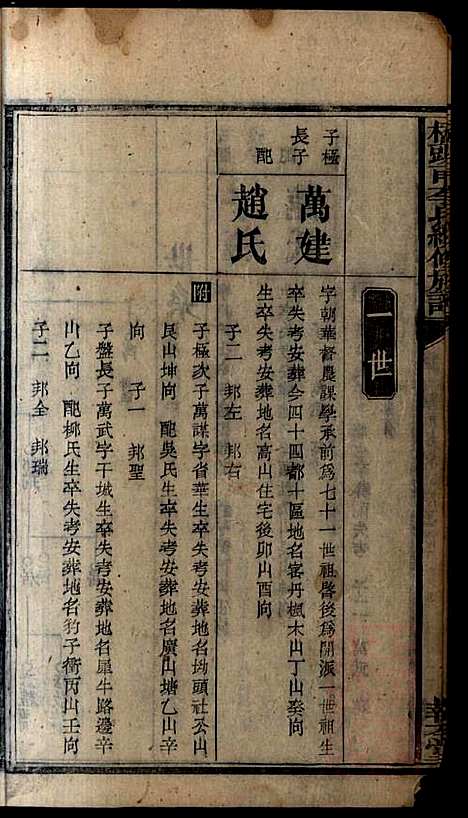 一世
子極長子
萬建
字朝華督農課學承前為七十一世祖啓後為開派一世祖生
卒失考安葬今四十四都十區地名客丹楓木山丁山癸向
配
趙氏
生卒失考安葬地名高山住宅後卯山酉向
子二 邦左 邦右
附
子極次子萬謀字省華生卒失考安葬地名坳頭社公山
艮山坤向 配吳氏生卒失考安葬地名廣山塘乙山辛
向 子一 邦聖
子盤長子萬武字干城生卒失考安葬地名犀牛路邊辛
山乙向 配柳氏生卒失考安葬地名豹子衝丙山壬向
子二 邦全 邦瑞